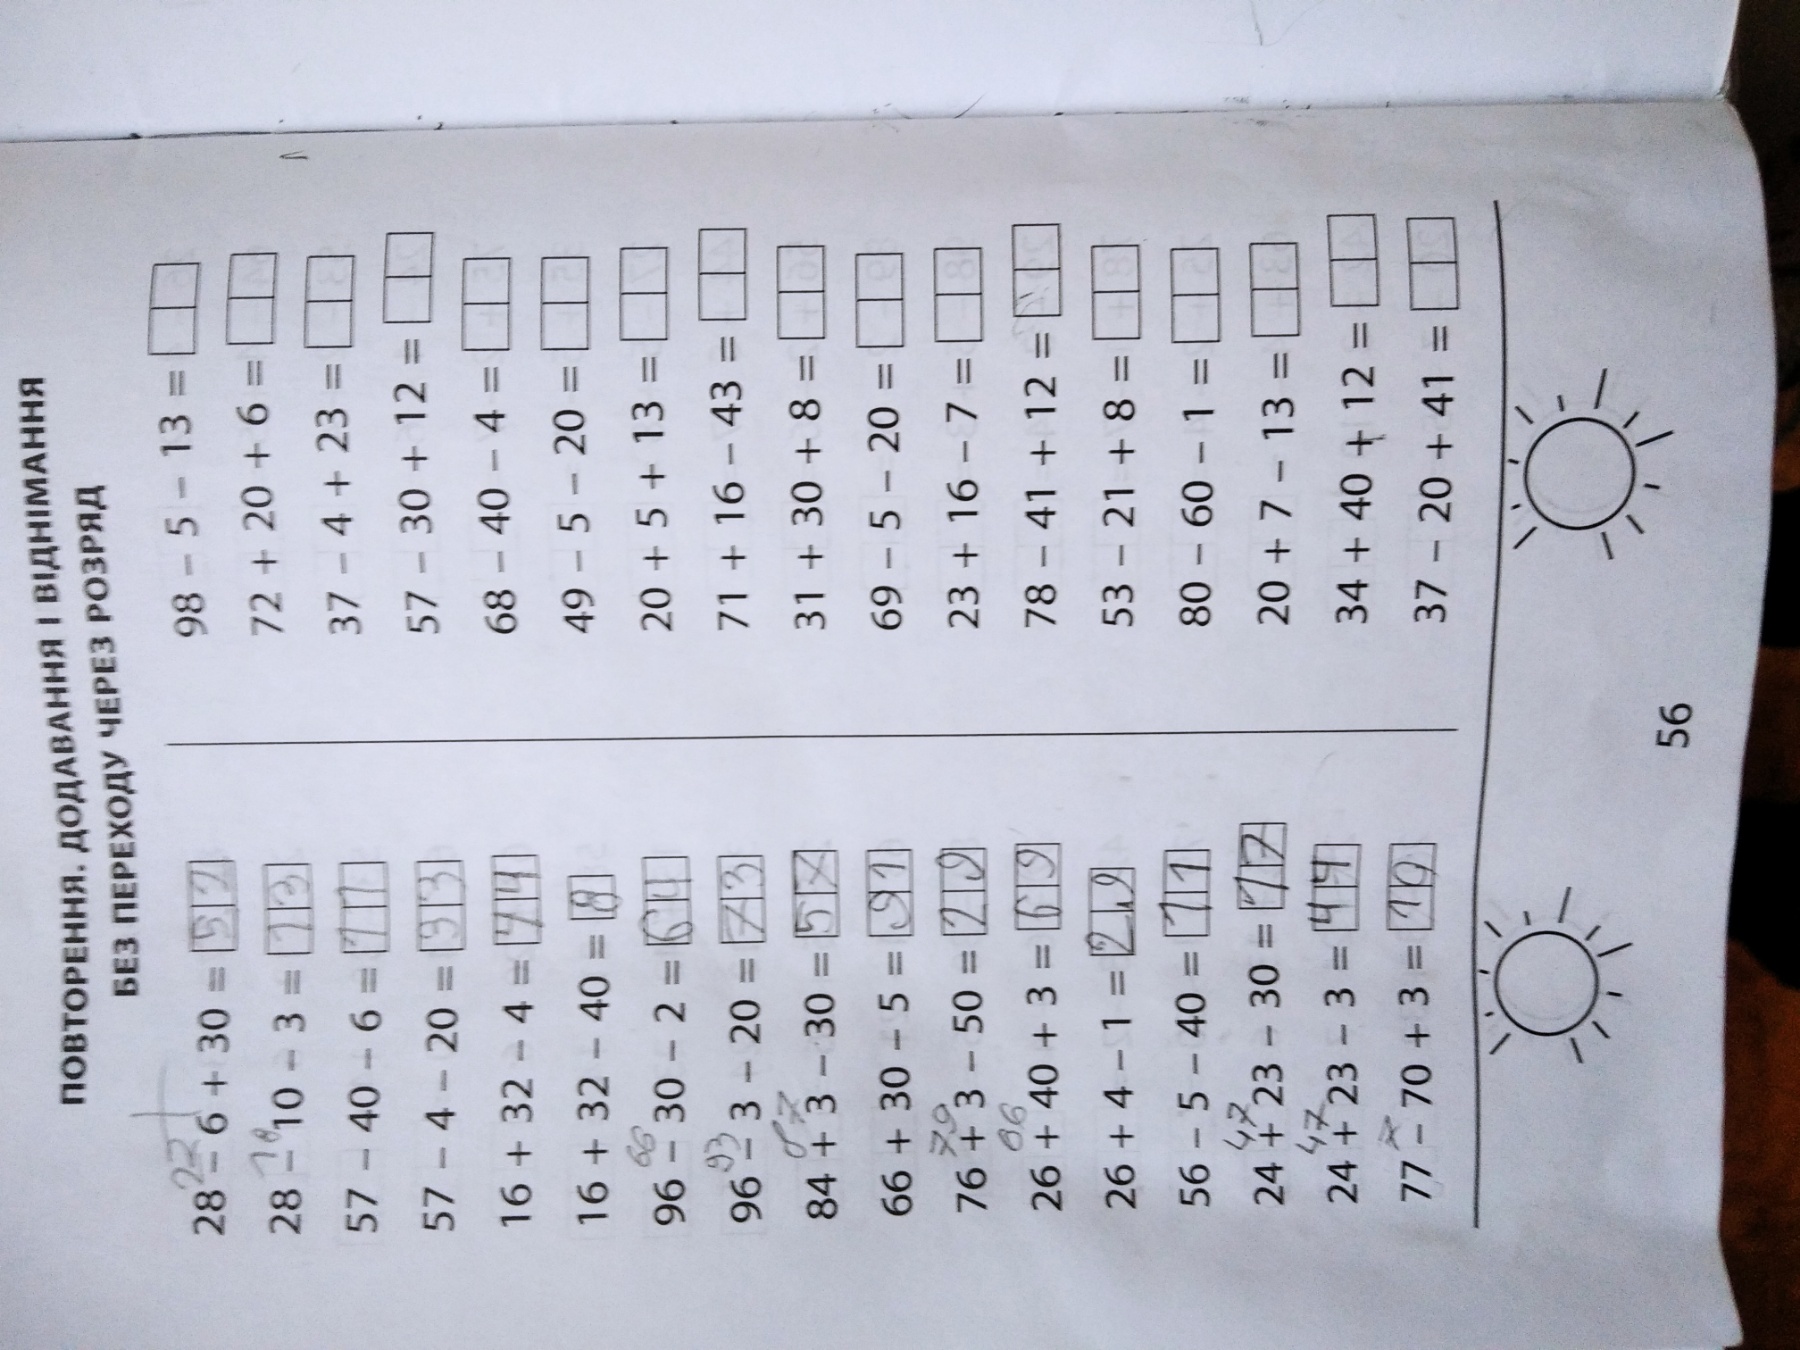 ПОВТОРЕННЯ. ДОДАВАННЯ І ВІДНІМАННЯ
БЕЗ ПЕРЕХОДУ ЧЕРЕЗ РОЗРЯД
22
28 – 6 + 30 = 52
18
28 – 10 – 3 = 13
57 – 40 – 6 = 11
57 – 4 – 20 = 33
16 + 32 – 4 = 44
16 + 32 – 40 = 8
66
96 – 30 – 2 = 64
93
96 – 3 – 20 = 73
87
84 + 3 – 30 = 57
66 + 30 – 5 = 91
79
76 + 3 – 50 = 29
66
26 + 40 + 3 = 69
26 + 4 – 1 = 29
56 – 5 – 40 = 11
47
24 + 23 – 30 = 17
47
24 + 23 – 3 = 44
7
77 – 70 + 3 = 10
98 – 5 – 13 =
72 + 20 + 6 =
37 – 4 + 23 =
57 – 30 + 12 =
68 – 40 – 4 =
49 – 5 – 20 =
20 + 5 + 13 =
71 + 16 – 43 =
31 + 30 + 8 =
69 – 5 – 20 =
23 + 16 – 7 =
78 – 41 + 12 =
53 – 21 + 8 =
80 – 60 – 1 =
20 + 7 – 13 =
34 + 40 + 12 =
37 – 20 + 41 =
56